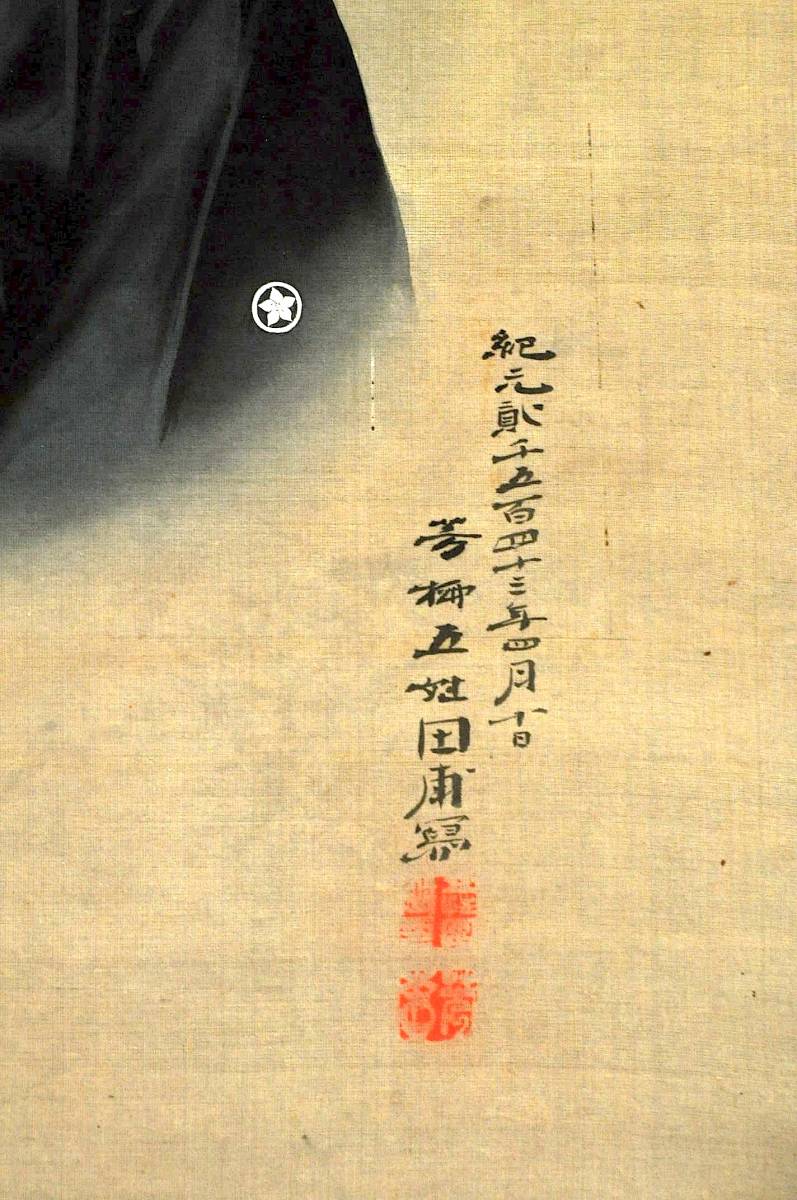 紀元貳千五百四十三年四月十日
芳柳五姓田甫寫